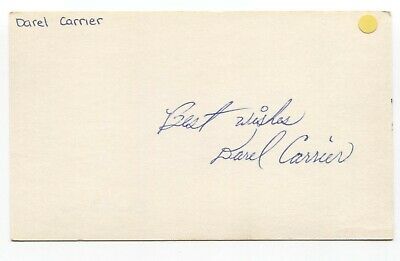 Darel Carrier
Best wishes
Darel Carrier